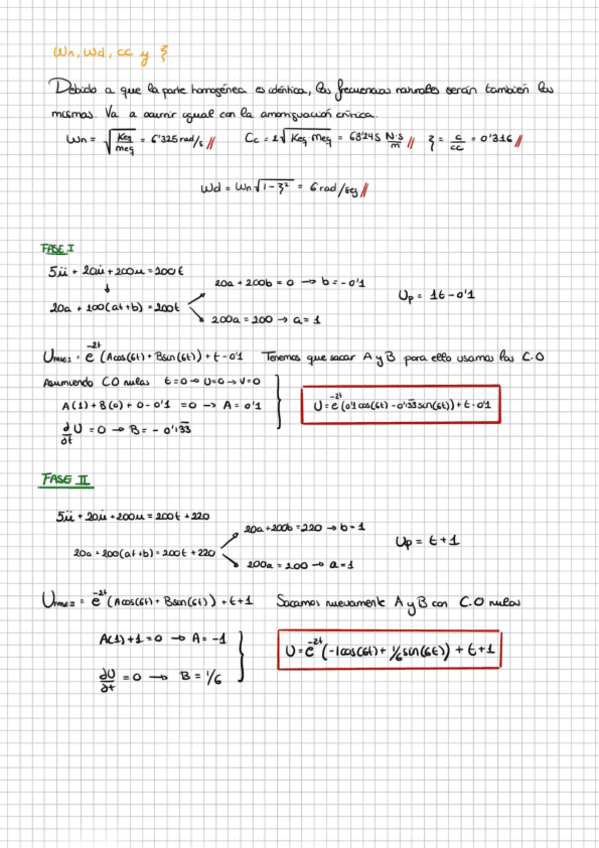 Wn, Wd, cc y ξ
Debido a que la parte homogénea es idéntica, las frecuencias naturales serán también las
mismas. Va a ocurrir igual con la amortiguación crítica.
Wn = √(Keq/meq) = 6'325 rad/s // Cc = 2√(Keq·meq) = 63'245 N·s/m // ξ = c/cc = 0'316 //
Wd = Wn√(1-ξ²) = 6 rad/seg //
FASE I
5ü + 20u̇ + 200u = 200t
20a + 200b = 0 → b = -0'1
20a + 200(at+b) = 200t
Up = 1t - 0'1
200a = 200 → a = 1
U = e^-2t (Acos(6t) + Bsin(6t)) + t - 0'1 Tenemos que sacar A y B para ello usamos las C.O
Asumiendo CO nulas t=0 → U=0 → V=0
A(1) + B(0) + 0 - 0'1 = 0 → A = 0'1
U = e^-2t (0'1cos(6t) - 0'133sin(6t)) + t - 0'1
∂/∂t U = 0 → B = -0'133
FASE II
5ü + 20u̇ + 200u = 200t + 220
20a + 200b = 220 → b = 1
20a + 200(at+b) = 200t + 220
Up = t + 1
200a = 200 → a = 1
U = e^-2t (Acos(6t) + Bsin(6t)) + t + 1 Sacamos nuevamente A y B con C.O nulas
A(1) + 1 = 0 → A = -1
U = e^-2t (-1cos(6t) + 1/6 sin(6t)) + t + 1
∂U/∂t = 0 → B = 1/6